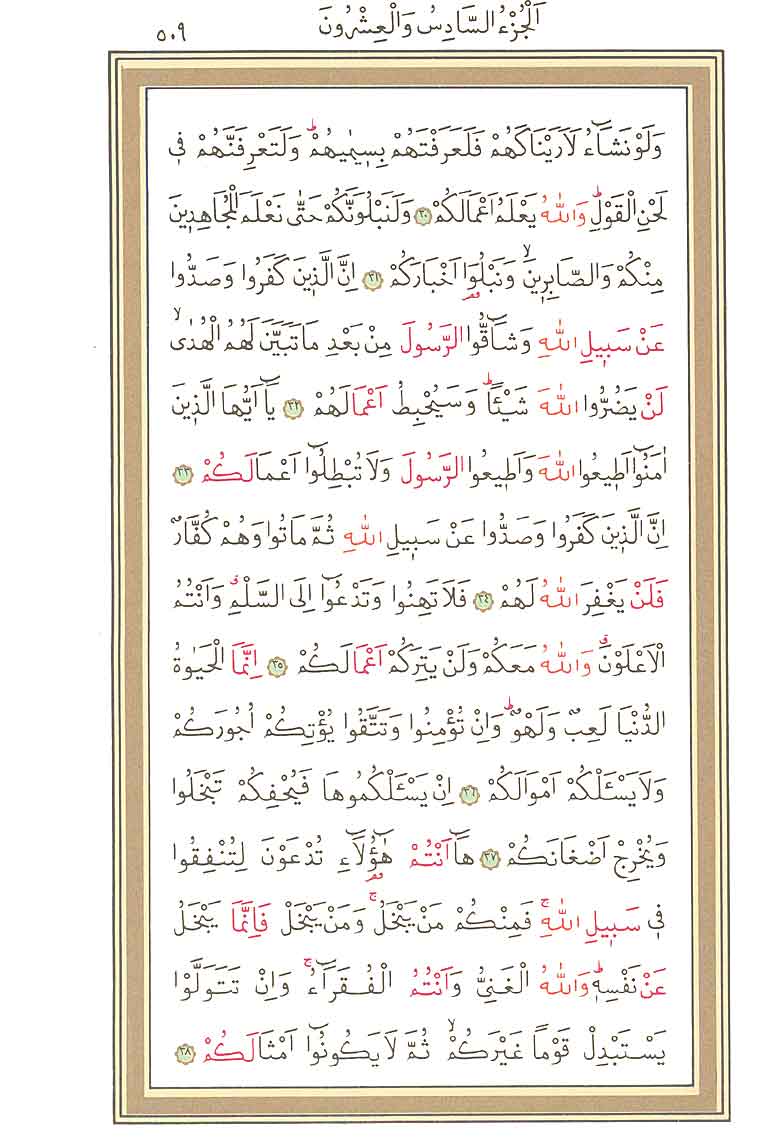 اَلْجُزْءُ السَّادِسُ وَالْعِشْرُونَ
٥٠٩
وَلَوْ نَشَٓاءُ لَاَرَيْنَاكَهُمْ فَلَعَرَفْتَهُمْ بِسٖيمٰيهُمْؕ وَلَتَعْرِفَنَّهُمْ فٖى
لَحْنِ الْقَوْلِؕ وَاللّٰهُ يَعْلَمُ اَعْمَالَكُمْ ﴿٣٠﴾ وَلَنَبْلُوَنَّكُمْ حَتّٰى نَعْلَمَ الْمُجَاهِدٖينَ
مِنْكُمْ وَالصَّابِرٖينَۙ وَنَبْلُوَا اَخْبَارَكُمْ ﴿٣١﴾ اِنَّ الَّذٖينَ كَفَرُوا وَصَدُّوا
عَنْ سَبٖيلِ اللّٰهِ وَشَٓاقُّوا الرَّسُولَ مِنْ بَعْدِ مَا تَبَيَّنَ لَهُمُ الْهُدٰىۙ
لَنْ يَضُرُّوا اللّٰهَ شَيْـًٔاؕ وَسَيُحْبِطُ اَعْمَالَهُمْ ﴿٣٢﴾ يَٓا اَيُّهَا الَّذٖينَ
اٰمَنُٓوا اَطٖيعُوا اللّٰهَ وَاَطٖيعُوا الرَّسُولَ وَلَا تُبْطِلُٓوا اَعْمَالَكُمْ ﴿٣٣﴾
اِنَّ الَّذٖينَ كَفَرُوا وَصَدُّوا عَنْ سَبٖيلِ اللّٰهِ ثُمَّ مَاتُوا وَهُمْ كُفَّارٌ
فَلَنْ يَغْفِرَ اللّٰهُ لَهُمْ ﴿٣٤﴾ فَلَا تَهِنُوا وَتَدْعُٓوا اِلَى السَّلْمِۗ وَاَنْتُمُ
الْاَعْلَوْنَۗ وَاللّٰهُ مَعَكُمْ وَلَنْ يَتِرَكُمْ اَعْمَالَكُمْ ﴿٣٥﴾ اِنَّمَا الْحَيٰوةُ
الدُّنْيَا لَعِبٌ وَلَهْوٌؕ وَاِنْ تُؤْمِنُوا وَتَتَّقُوا يُؤْتِكُمْ اُجُورَكُمْ
وَلَا يَسْـَٔلْكُمْ اَمْوَالَكُمْ ﴿٣٦﴾ اِنْ يَسْـَٔلْكُمُوهَا فَيُحْفِكُمْ تَبْخَلُوا
وَيُخْرِجْ اَضْغَانَكُمْ ﴿٣٧﴾ هَٓا اَنْتُمْ هٰٓؤُ۬لَٓاءِ تُدْعَوْنَ لِتُنْفِقُوا
فٖى سَبٖيلِ اللّٰهِۚ فَمِنْكُمْ مَنْ يَبْخَلُۚ وَمَنْ يَبْخَلْ فَاِنَّمَا يَبْخَلُ
عَنْ نَفْسِهٖؕ وَاللّٰهُ الْغَنِىُّ وَاَنْتُمُ الْفُقَرَٓاءُۚ وَاِنْ تَتَوَلَّوْا
يَسْتَبْدِلْ قَوْماً غَيْرَكُمْۙ ثُمَّ لَا يَكُونُٓوا اَمْثَالَكُمْ ﴿٣٨﴾